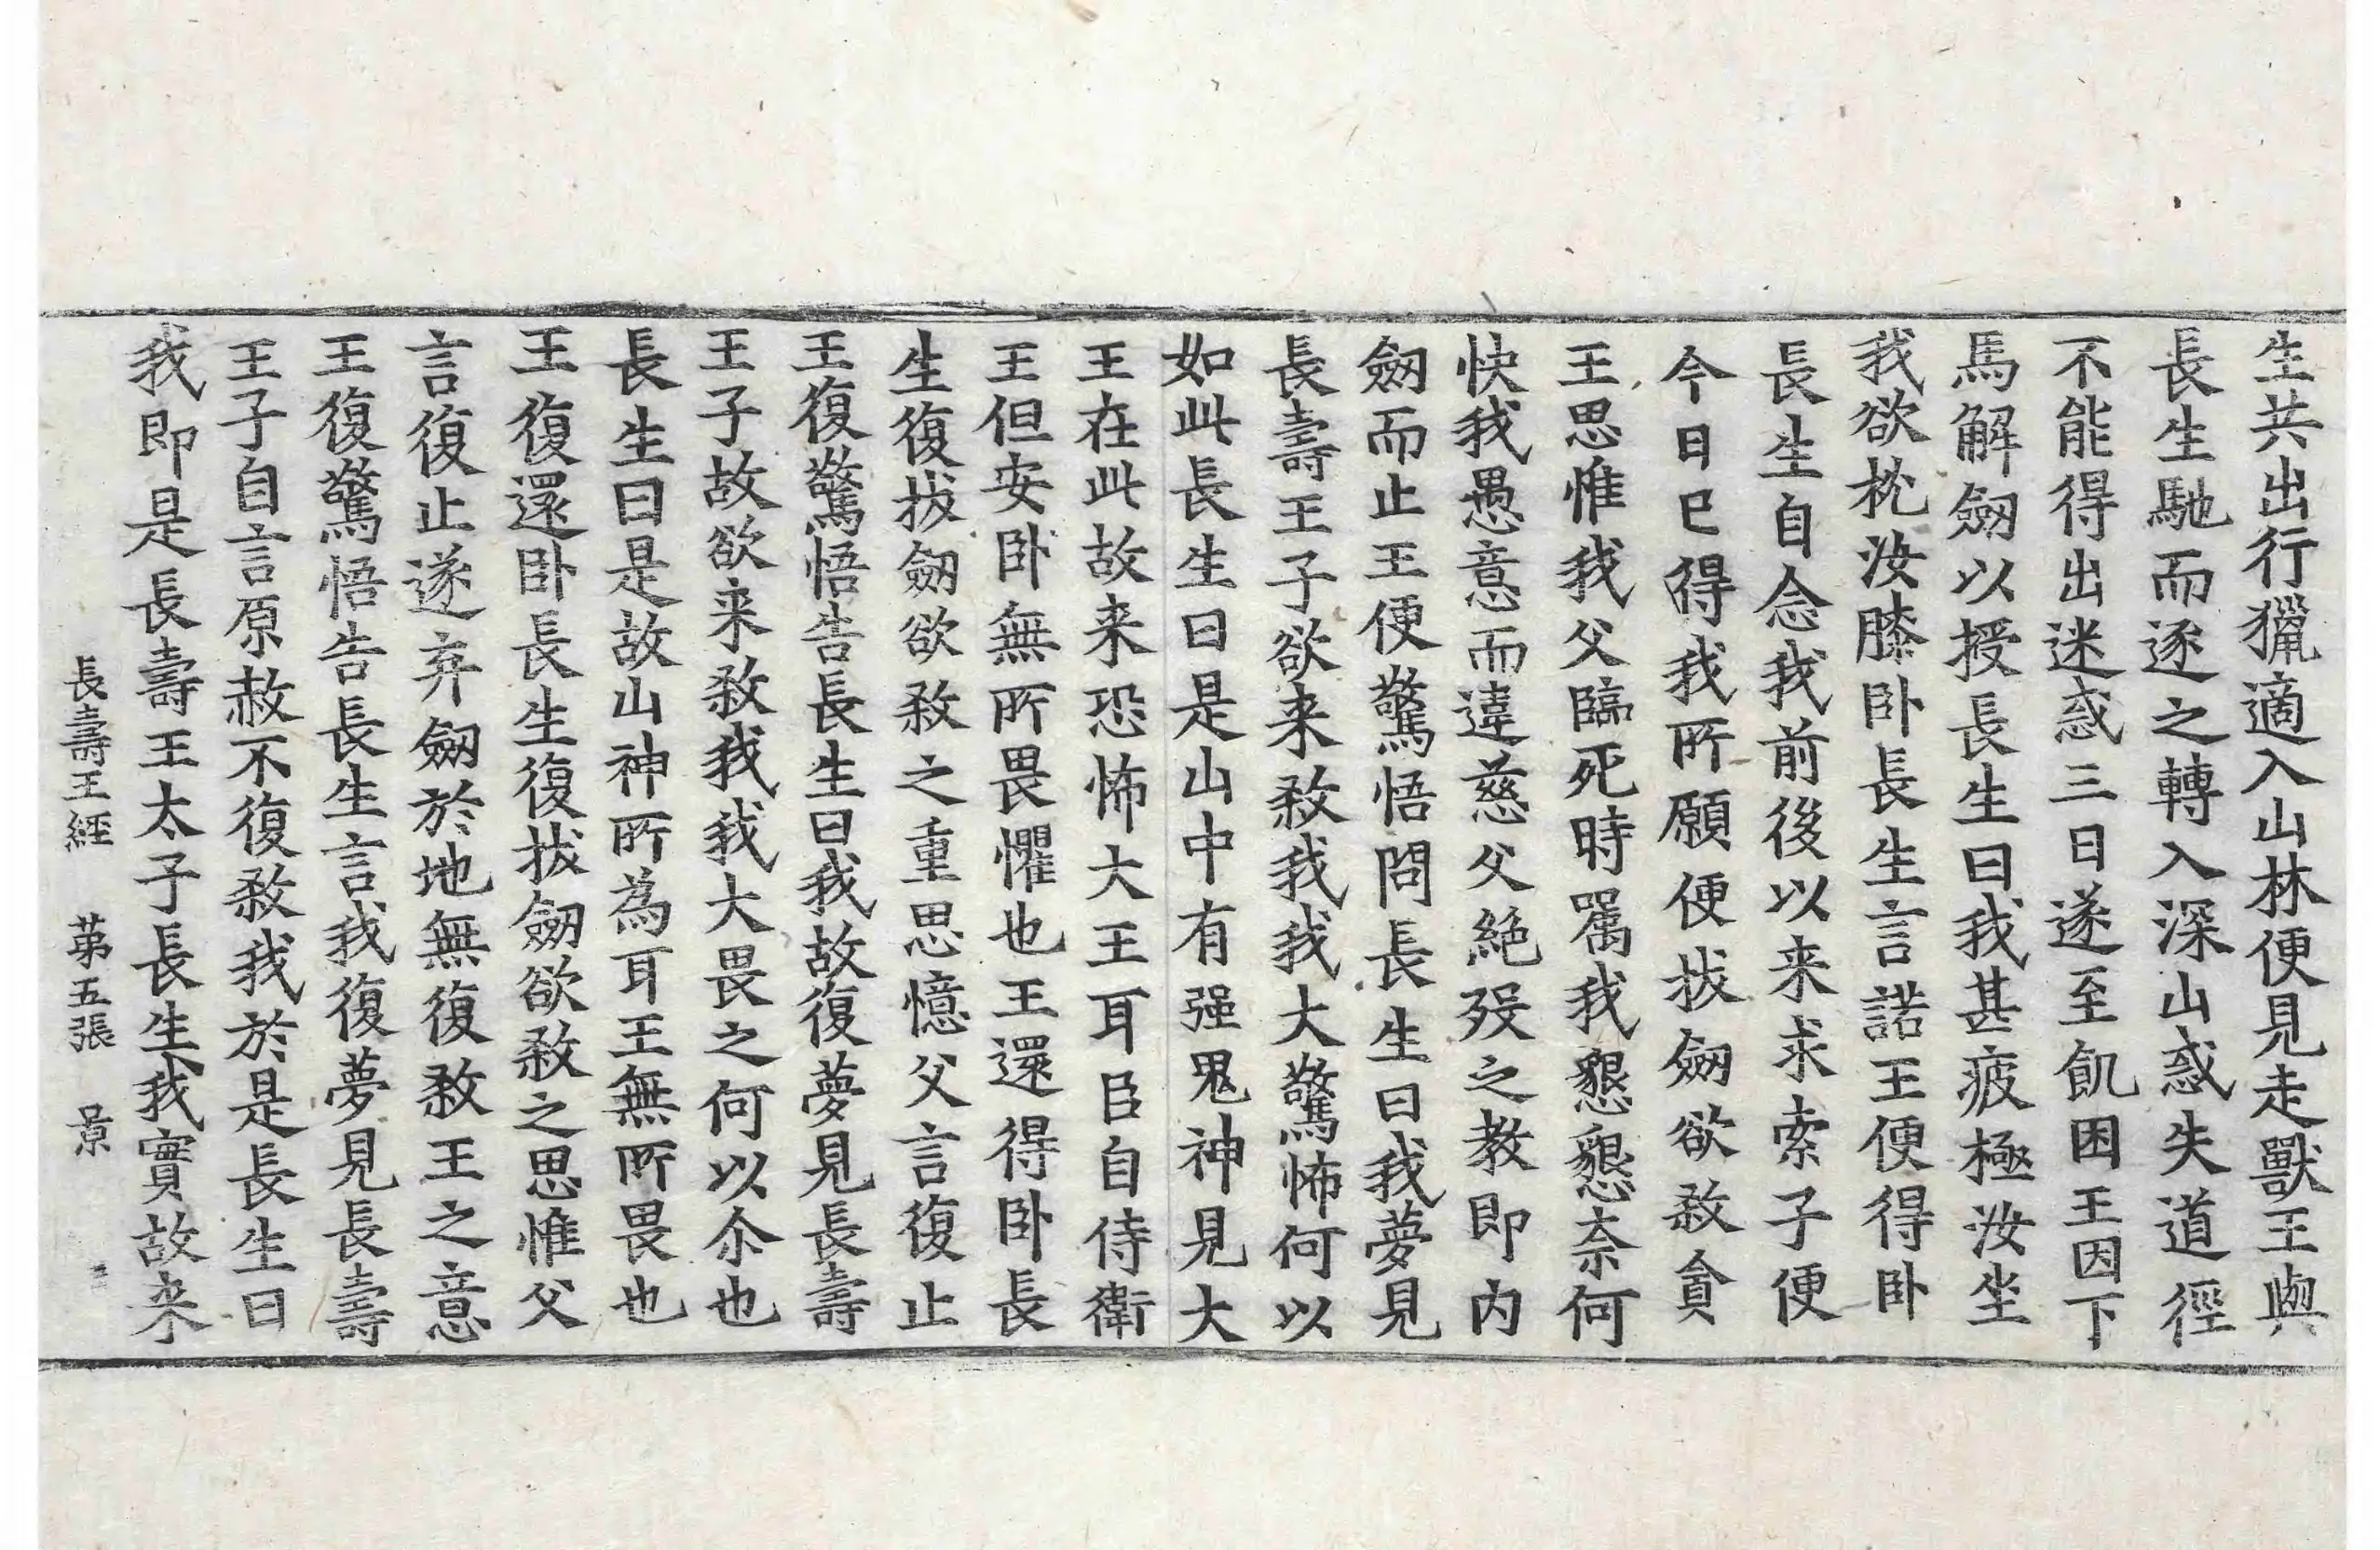 生共出行獵適入山林便見走獸王與
長生馳而逐之轉入深山惑失道徑
不能得出迷惑三日遂至飢困王因下
馬解劒以授長生曰我甚疲極汝坐
我欲枕汝膝卧長生言諾王便得卧
長生自念我前後以来求索子便
今日已得我所願便拔劒欲敎貪
王思惟我父臨死時囑我懇懇柰何
快我愚意而違慈父絶歿之教即內
劒而止王便驚悟問長生曰我夢見
長壽王子欲来敎我我大驚怖何以
如此長生曰是山中有强鬼神見大
王在此故来恐怖大王耳臣自侍衛
王但安卧無所畏懼也王還得卧長
生復拔劒欲敎之重思憶父言復止
王復驚悟告長生曰我故復夢見長壽
王子故欲来敎我我大畏之何以尒也
長生曰是故山神所為耳王無所畏也
王復還卧長生復拔劒欲敎之思惟父
言復止遂弃劒於地無復敎王之意
王復驚悟告長生言我復夢見長壽
王子自言原赦不復敎我於是長生曰
我即是長壽王太子長生我實故来
長壽王經 苐五張 景